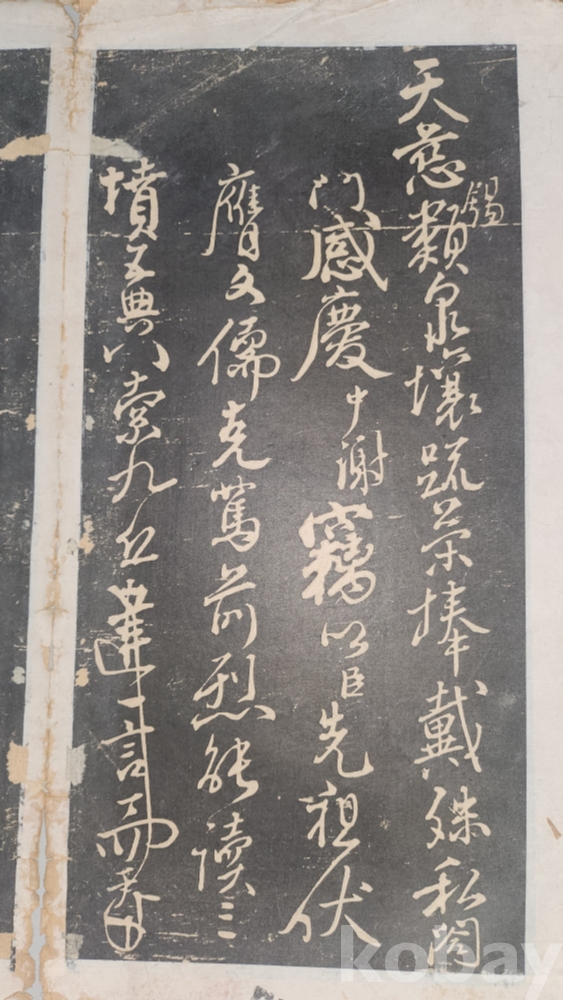 天慈錫類泉壤疏榮捧戴殊私闔
門感慶中謝竊以臣先祖伏
膺文儒克篤前烈能讀三
墳五典八索九丘言而
kobay